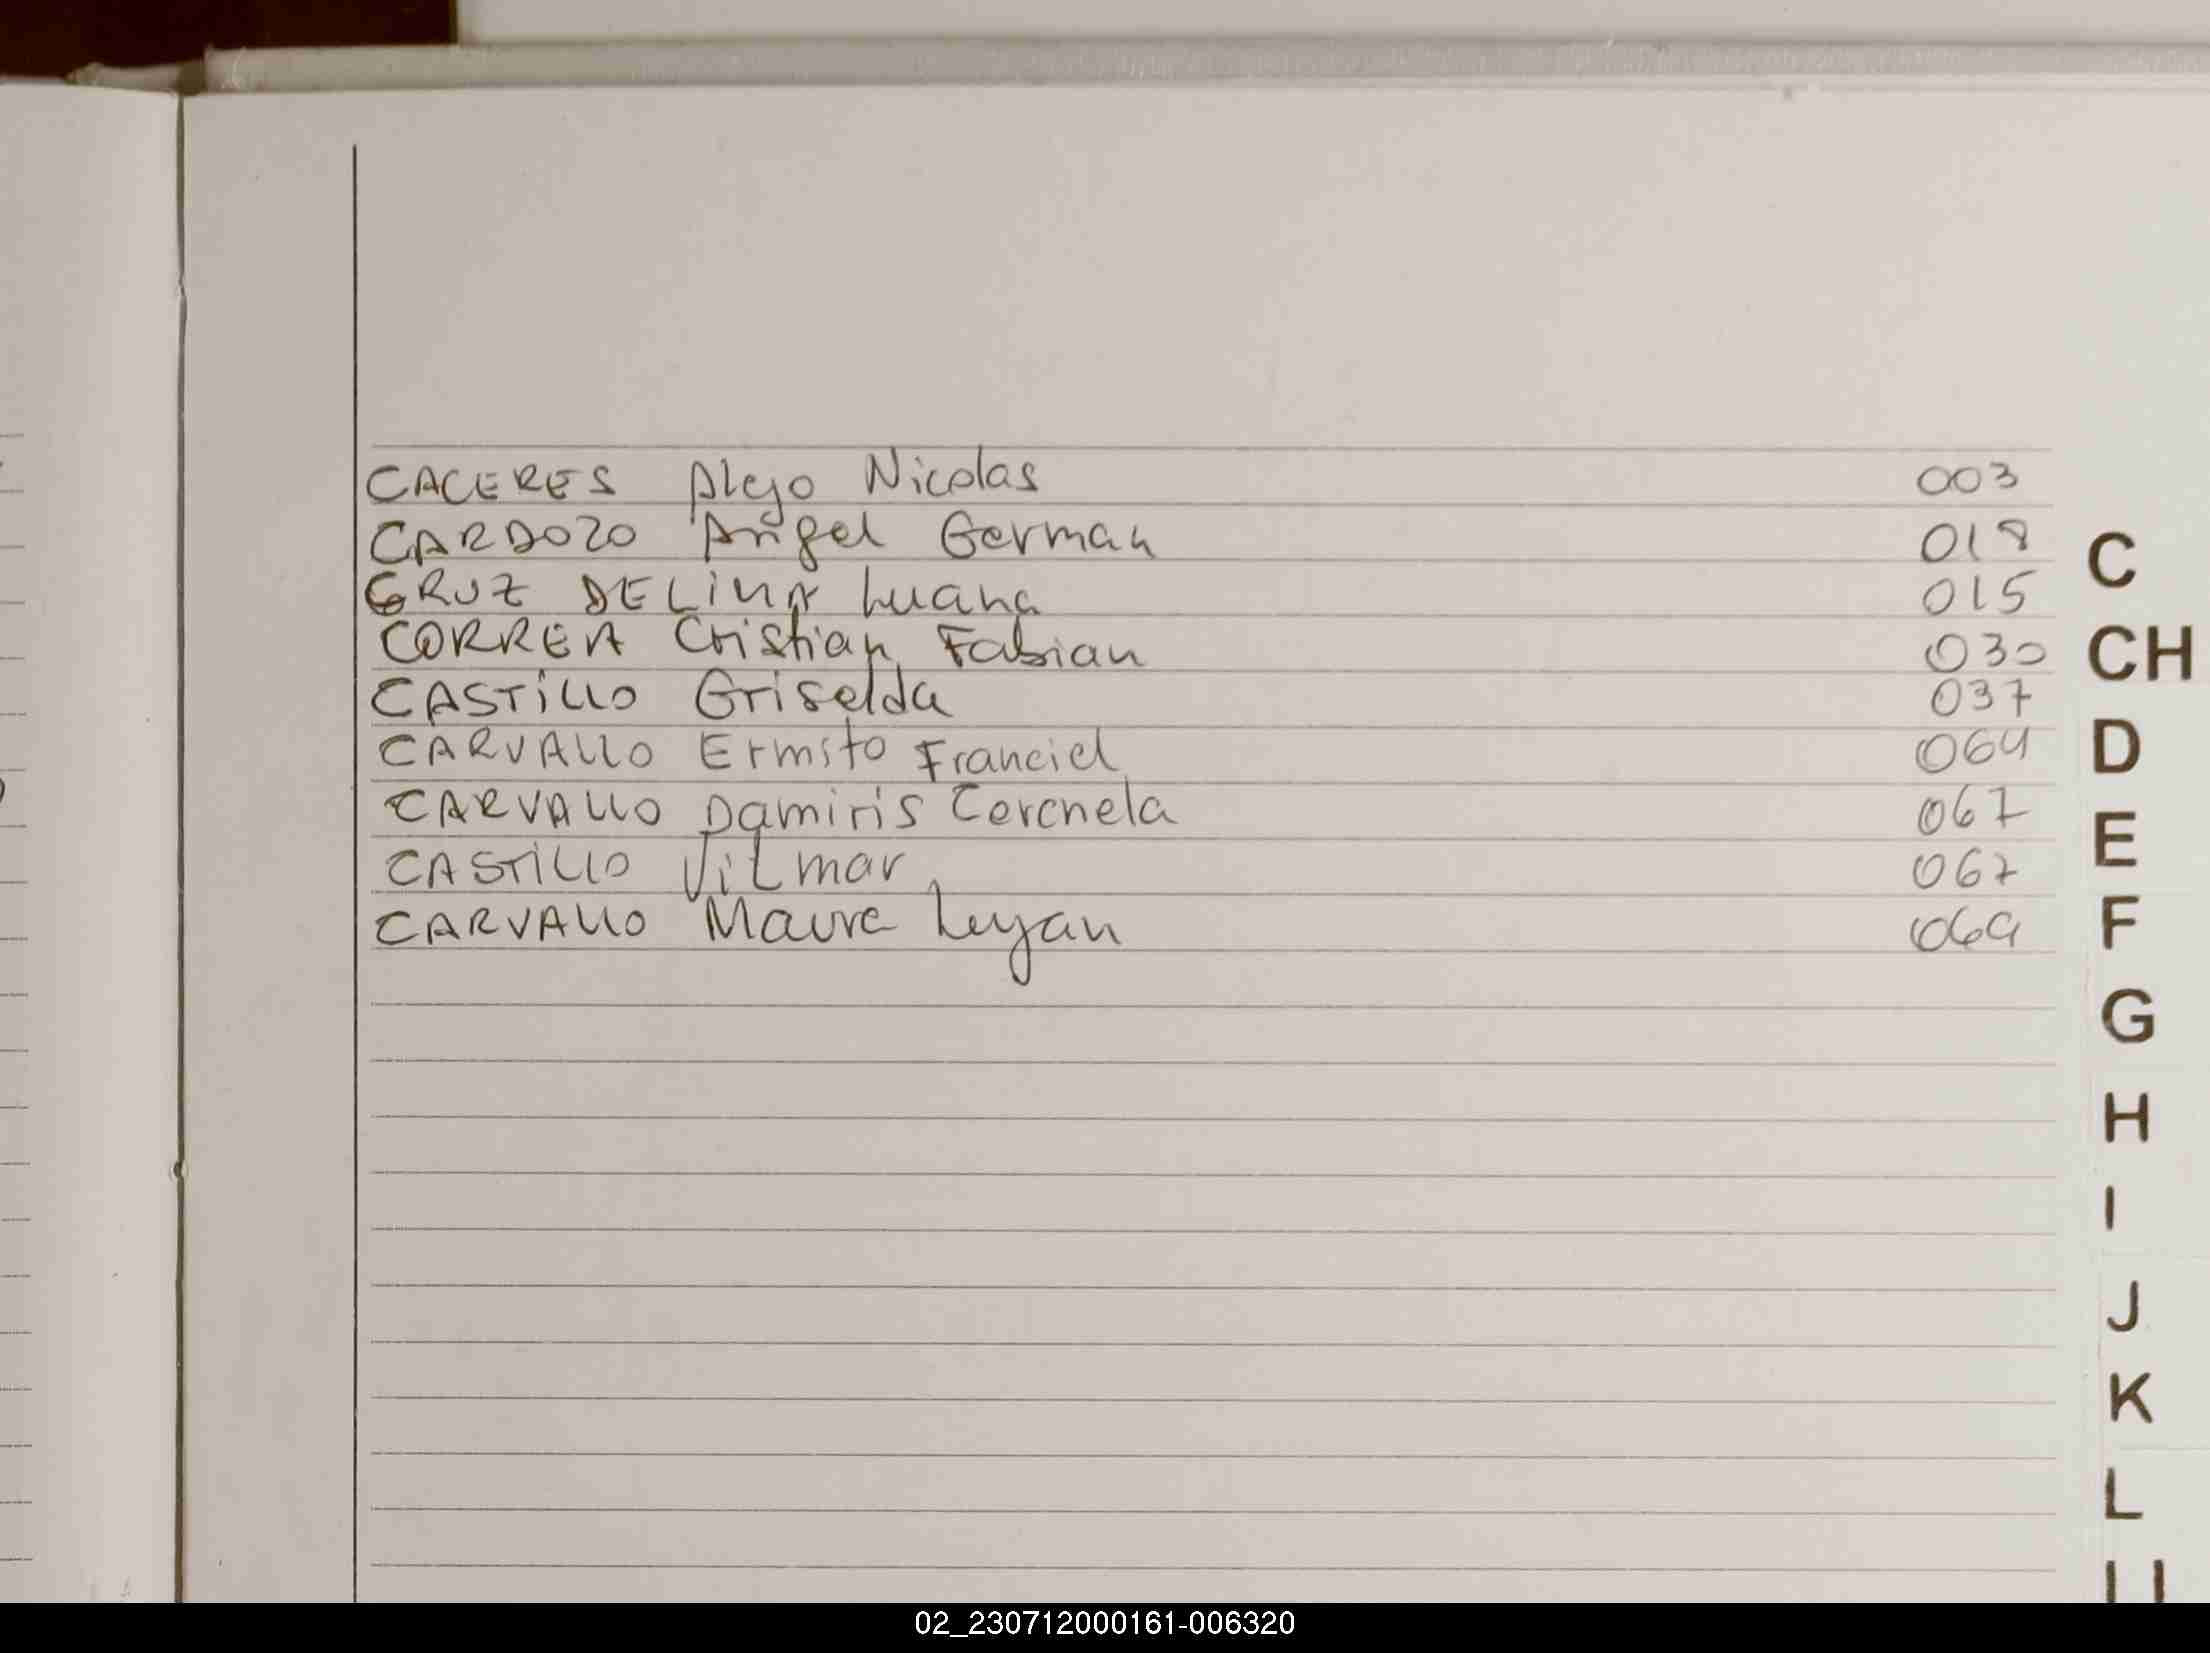 CACERES Alejo Nicolas 003
CARDOZO Angel German 018
CRUZ DELINA Luana 015
CORREA Cristian Fabian 030
CASTiLLO Griselda 037
CARVALLO Franciel 064
CARVALLO Damiris 067
CASTiLLO ViLmar 067
CARVALLO Leyan 069
C
CH
D
E
F
G
H
I
J
K
L
02_230712000161-006320